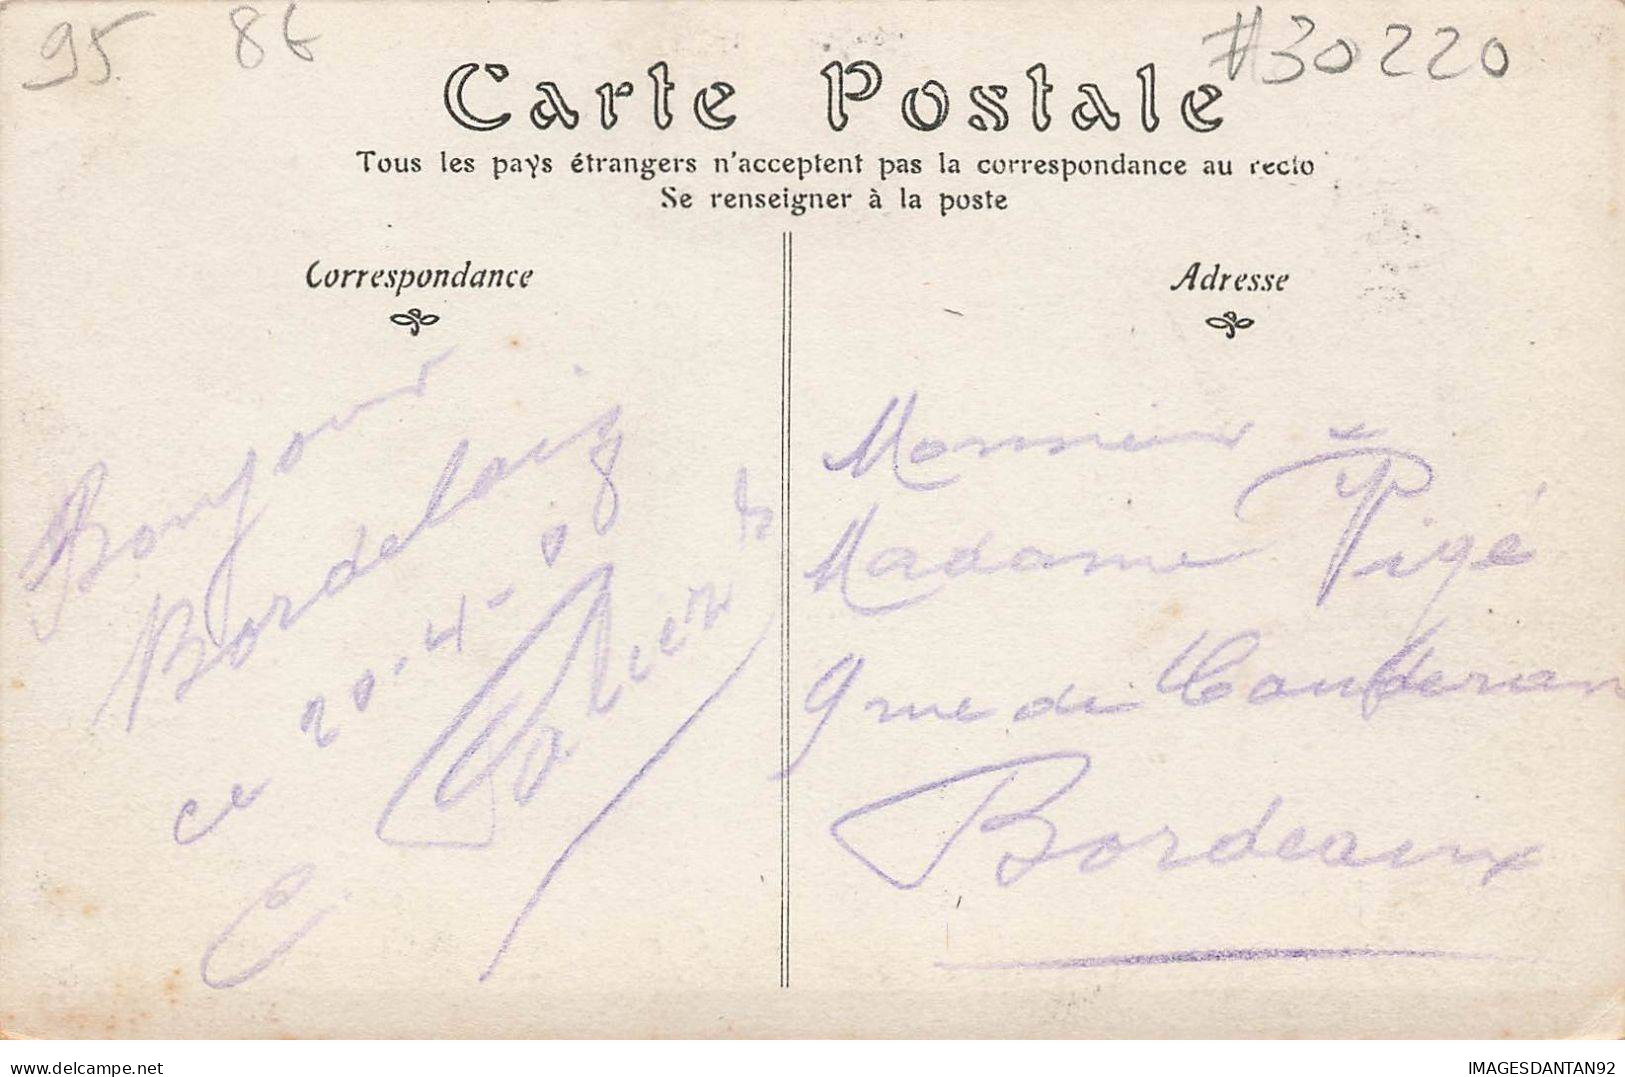 95 86 #30220
Carte Postale
Tous les pays étrangers n'acceptent pas la correspondance au recto
Se renseigner à la poste
Correspondance
Bonjour
Bordelais
ce 20-4-08
C.
Adresse
Monsieur
Madame Pigé
9 rue de Cauderan
Bordeaux
delcampe.net
IMAGESDANTAN92